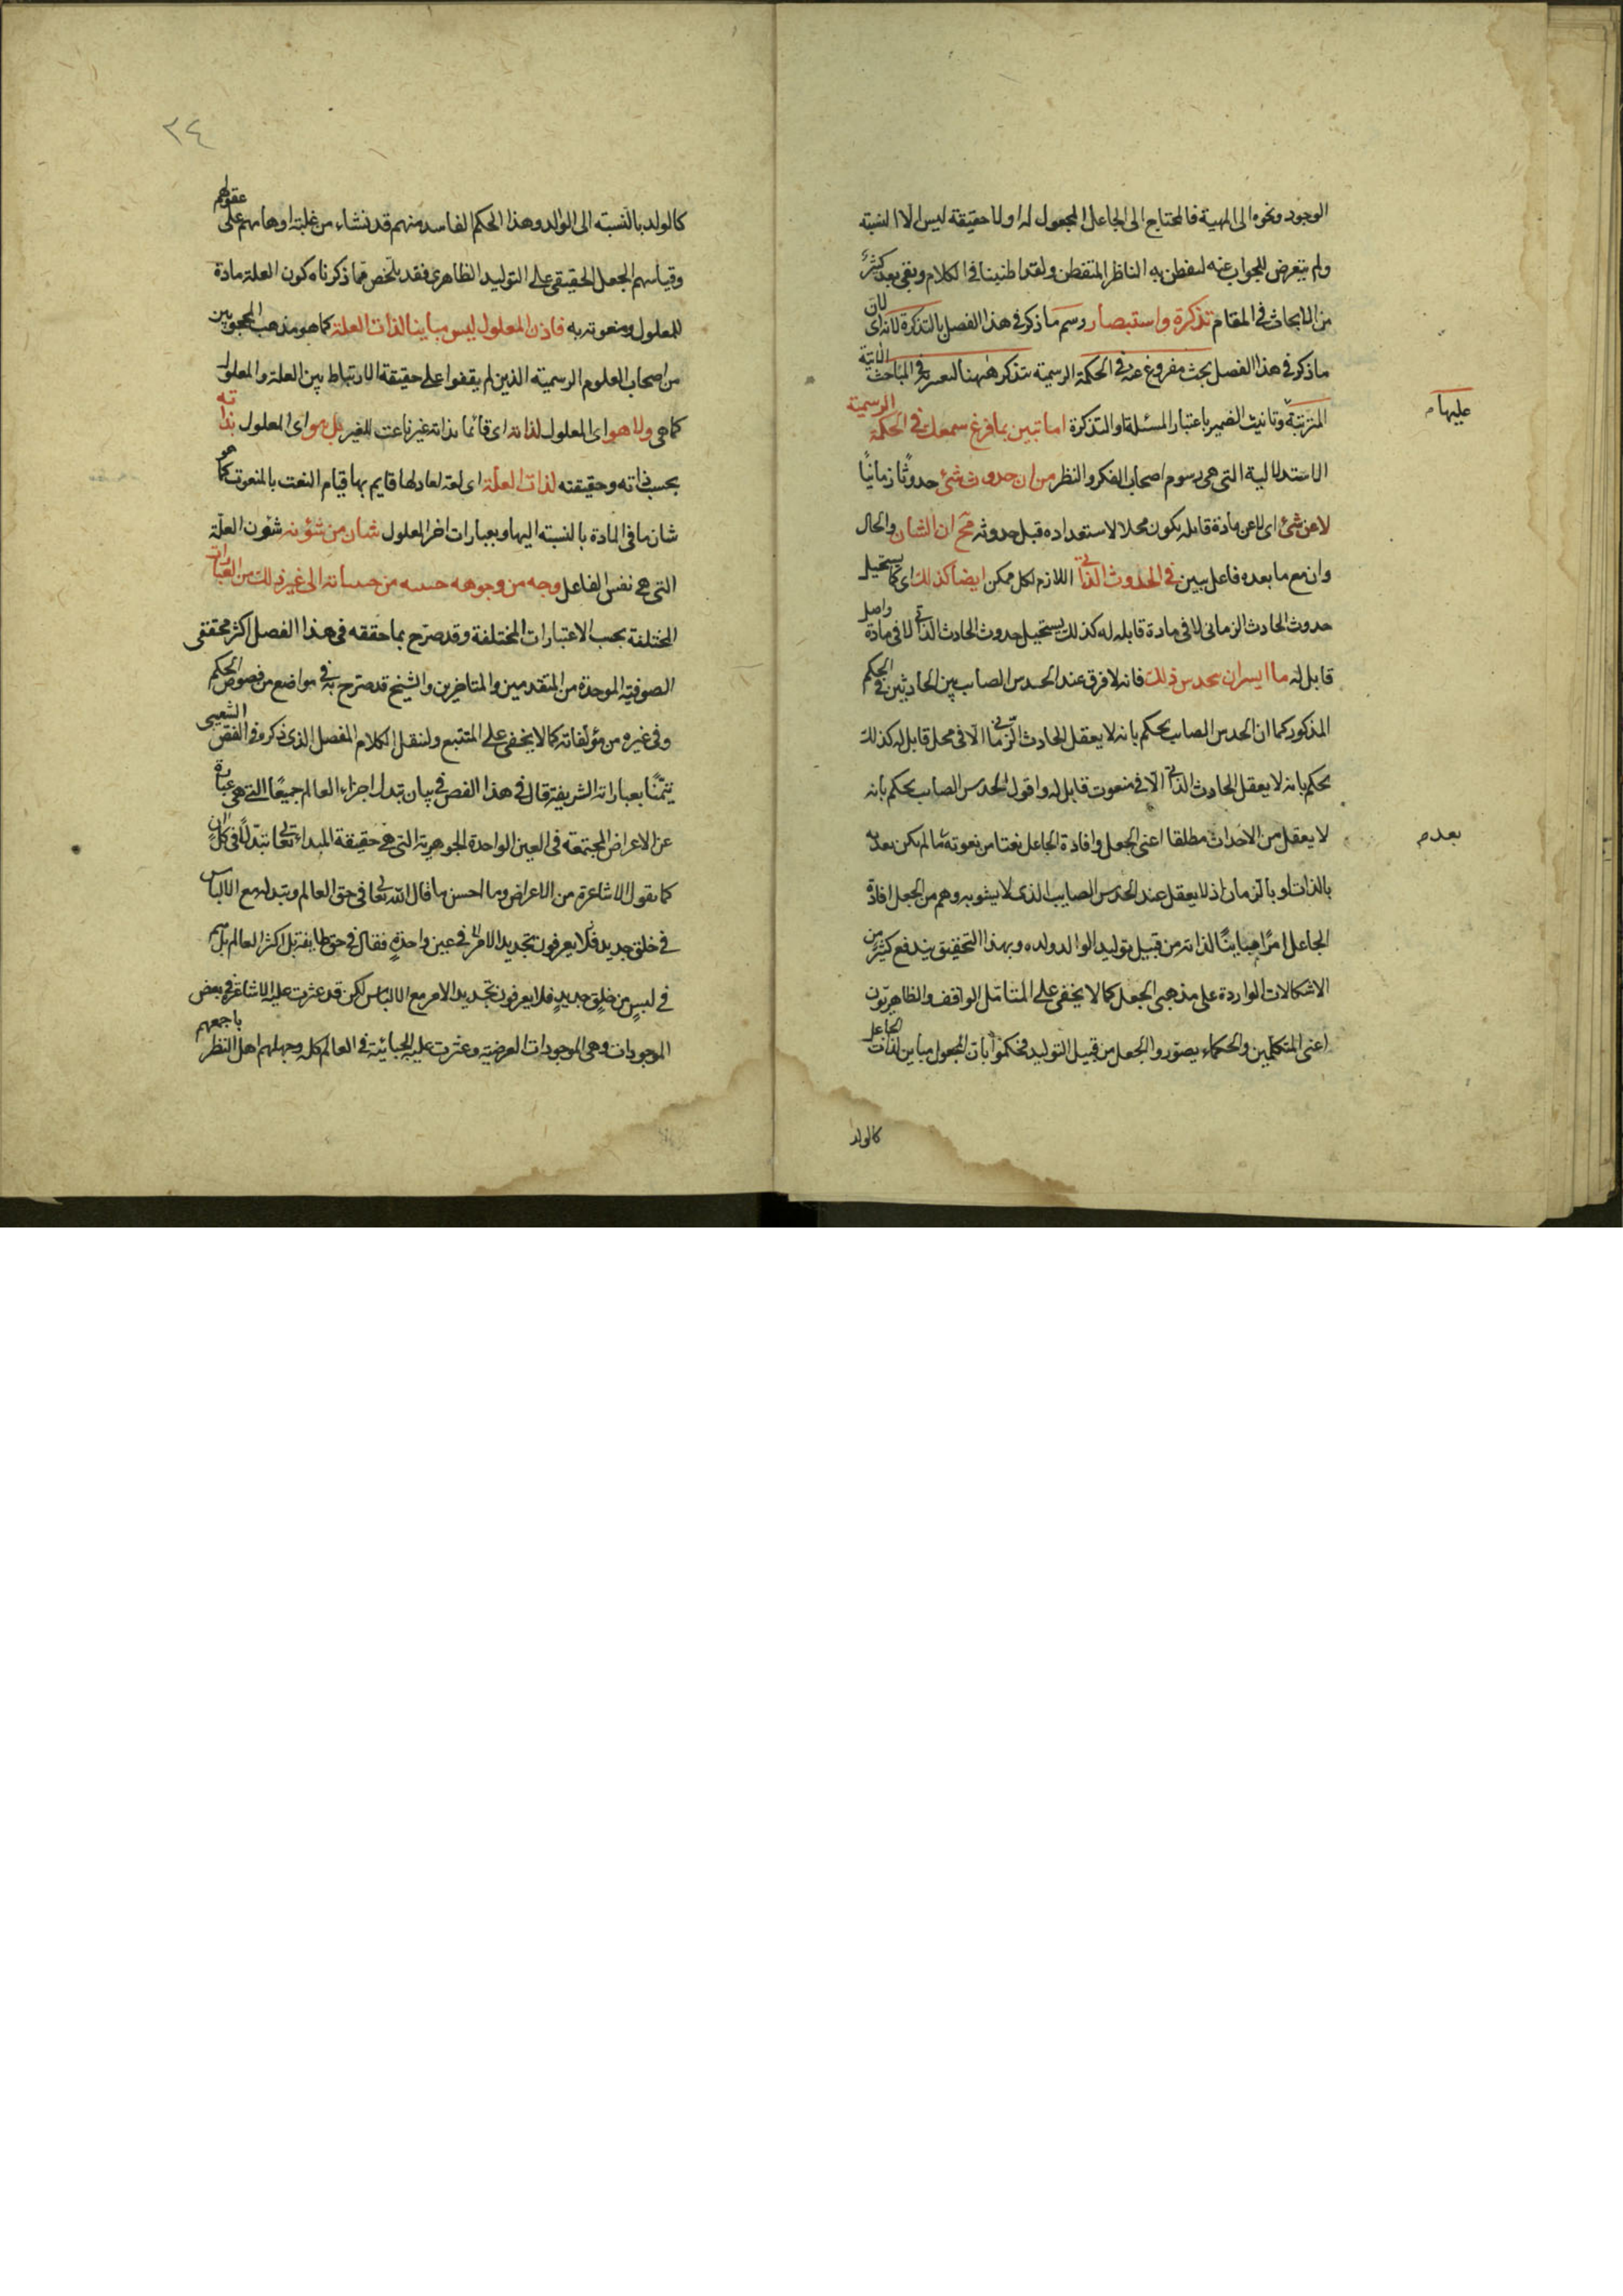 الوجود ونحوه الى المهية فالمحتاج الى الجاعل المجعول له اولا حقيقة ليس الا النسبة
ولم يتعرض للجواب عنه لتفطن به الناظر المتفطن ولقد اطنبنا في الكلام وبقي بعد كثير
من الابحاث في المقام تذكرة واستبصار وسم ما ذكر في هذا الفصل بالتذكرة لان
ما ذكر في هذا الفصل بحث مفروغ عنه في الحكمة الرسمية تتذكر ههنا في المباحث الاتية
عليها
المترتبة وتانيث الضمير باعتبار المسئلة او التذكرة اما تبين بما فرغ سمعك في الحكمة الرسمية
الاستدلالية التي هي رسوم اصحاب الفكر والنظر من ان حدوث شئ حدوثا زمانيا
لا عن شئ اى لا عن مادة قابله يكون محلا لاستعداده قبل حدوثه مح ان الشان والحال
وان مع ما بعده فاعل يبين في الحدوث الذاتي اللازم لكل ممكن ايضا كذلك اى كما يستحيل
حدوث الحادث الزماني لا في مادة قابله له كذلك يستحيل حدوث الحادث الذاتي لا في مادة
قابل له ما ايسر ان تحدس ذلك فانه لا فرق عند الحدس الصايب بين الحادثين في الحكم
المذكور كما ان الحدس الصايب يحكم بانه لا يعقل الحادث الزماني الا في محل قابل له كذلك
يحكم بانه لا يعقل الحادث الذاتي الا في منعوت قابل له واقول الحدس الصايب يحكم بانه
لا يعقل من الاحداث مطلقا اعنى الجعل وافادة الجاعل نعتا من نعوته ما لم يكن
بعدم
بالذات او بالزمان اذ لا يعقل عند الحدس الصايب الذى لا يشوبه وهم من الجعل افادة
الجاعل امرا مباينا لذاته من قبيل توليد الوالد ولده وبهذا التحقيق يندفع كثير من
الاشكالات الواردة على مذهبى الجعل كما لا يخفى على المتامل الواقف والظاهريون
اعنى المتكلمين والحكماء يصوروا الجعل من قبيل التوليد فحكموا بان المجعول مباين لذات الجاعل
كالولد
٢٤
كالولد بالنسبته الى الوالد وهذا الحكم الفاسد منهم قد نشاء من غلبة اوهامهم على عقولهم
وقياسهم الجعل الحقيقى على التوليد الظاهرى فقد تلخص مما ذكرناه كون العلة مادة
للمعلول ومنعوته به فاذن المعلول ليس مباينا لذات العلة كما هو مذهب المحجوبين
من اصحاب العلوم الرسمية الذين لم يقفوا على حقيقة الارتباط بين العلة والمعلول
كما هى ولا هو اى المعلول لذاته اى قائما بذاته غير ناعت للغير بل هو اى المعلول بذاته
بحسب ذاته وحقيقته لذات العلة اى نعته لها قايم بها قيام النعت بالمنعوت كما هو
شان ما في المادة بالنسبته اليها وبعبارات اخر المعلول شان من شئونه شئون العلة
التى هى نفس الفاعل وجه من وجوهه من الى غير ذلك من العبارات
المختلفة بحسب الاعتبارات المختلفة وقد صرح بما حققه في هذا الفصل اكثر محققى
الصوفية الموحدة من المتقدمين والمتاخرين والشيخ قد صرح به في مواضع من فصوص الحكم
وفي غيره من مؤلفاته كما لا يخفى على المتتبع ولننقل الكلام المفصل الذى ذكره في الفص الشعيبى
تيمنا بعباراته الشريفة قال في هذا الفص في بيان تبدل اجزاء العالم جميعا التى هى عبارة
عن الاعراض المجتمعة في العين الواحدة الجوهرية التى هى حقيقة المبداء تعالى تبدلا في كل ان
كما يقول الاشاعرة من الاعراض وما احسن ما قال الله تعالى في حق العالم وتبدله مع الانفاس
في خلق جديد فلا يعرفون تجديد الامر في عين واحدة فقال في حق طايفة بل اكثر العالم بل هم
في لبس من خلق جديد فلا يعرفون تجديد الامر مع الانفاس لكن قد عثرت عليه الاشاعرة في بعض
الموجودات وهى الموجودات العرضية وعثرت عليه الحسبانية في العالم كله وجهلهم اهل النظر باجمعهم